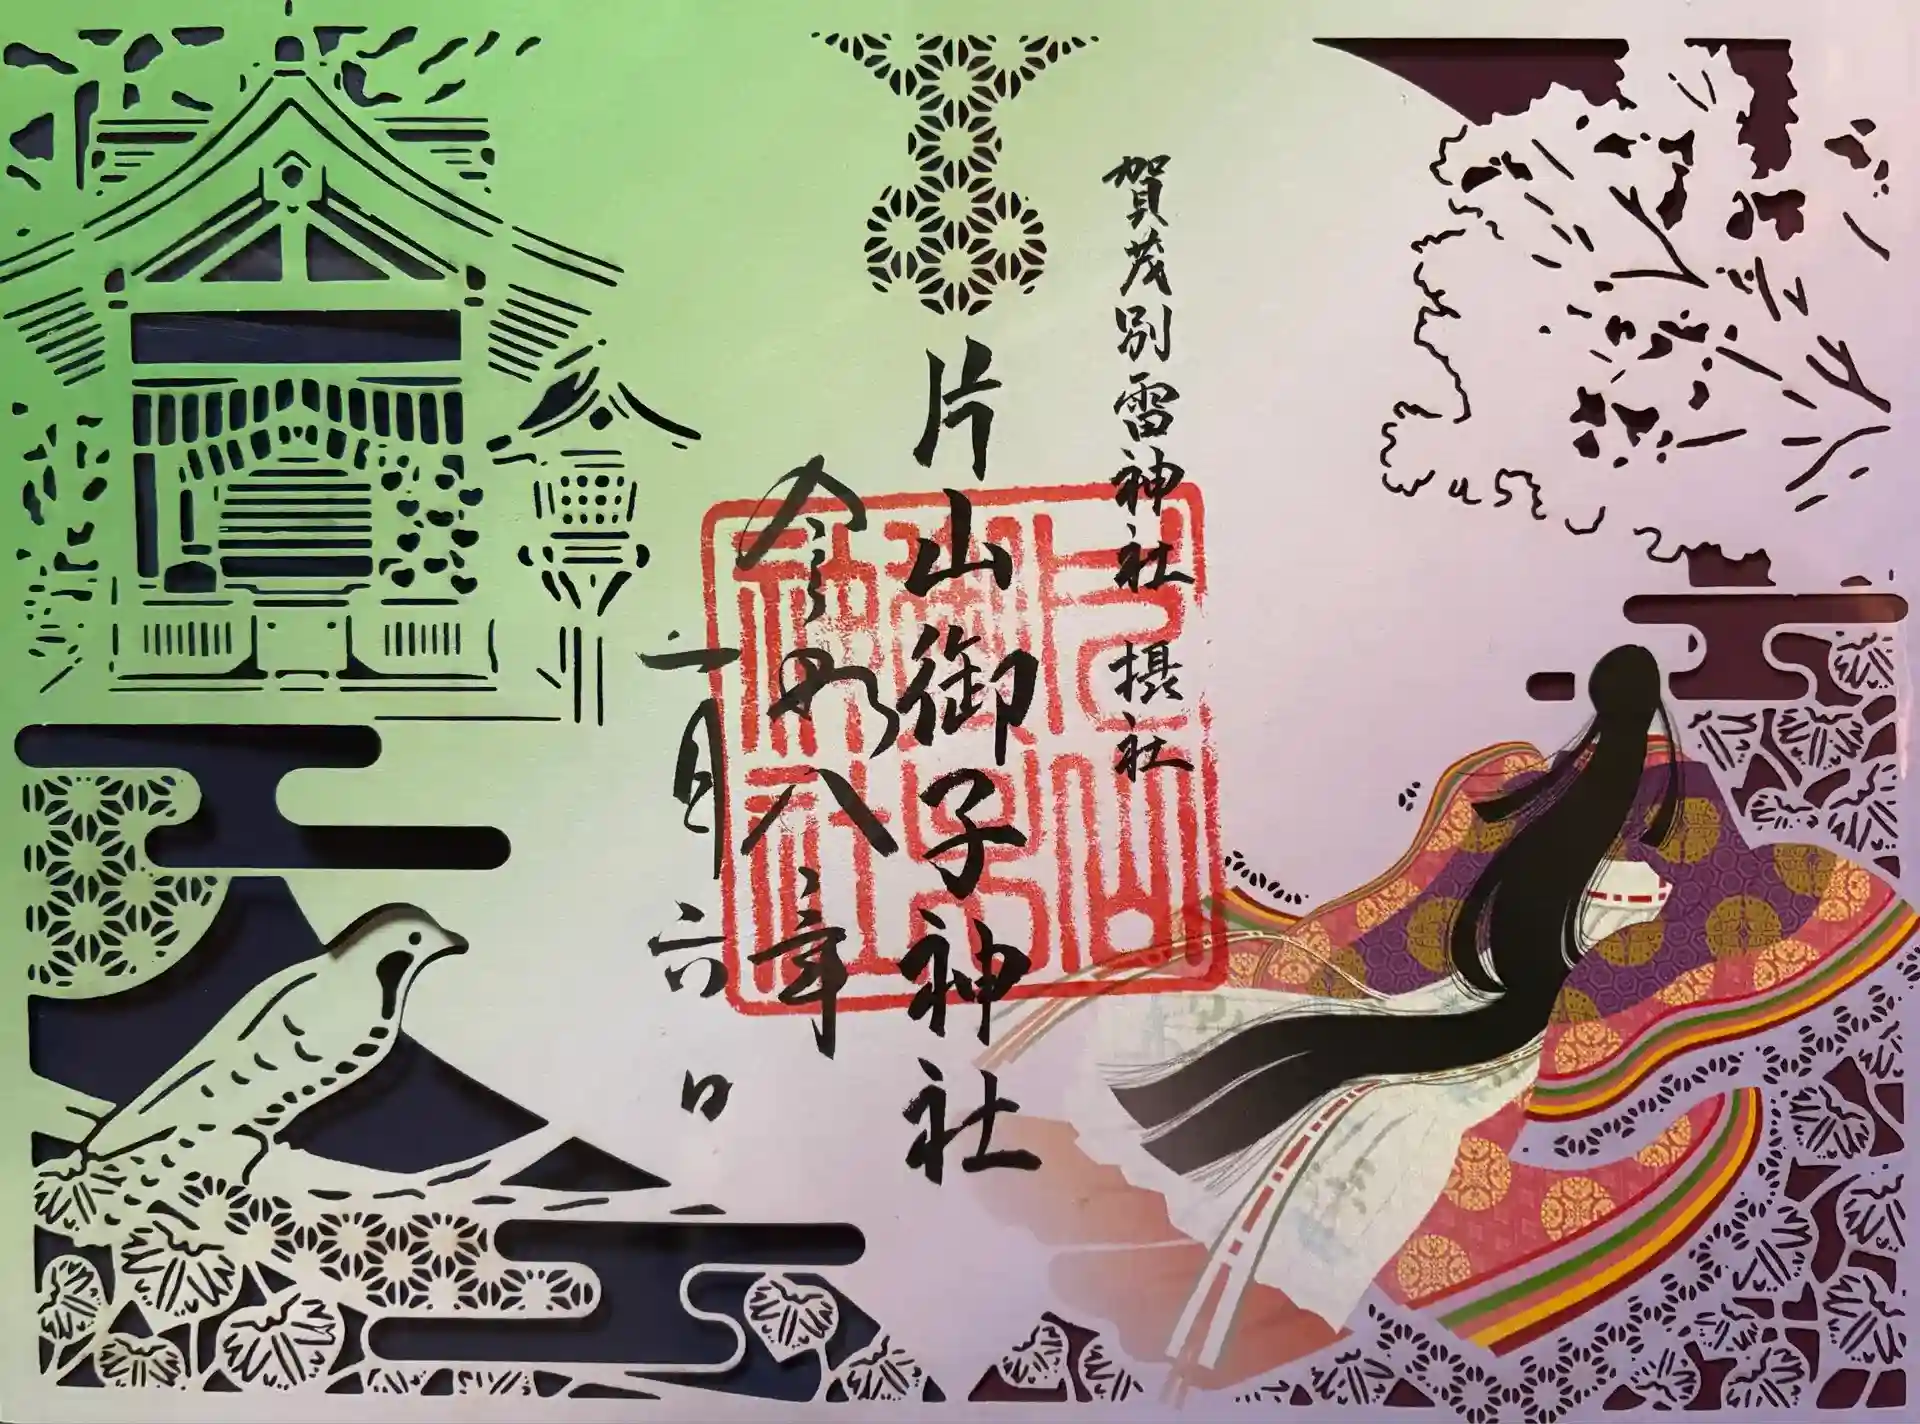 賀茂別雷神社 摂社
片山御子神社
令和八年
二月六日
片山御子神社